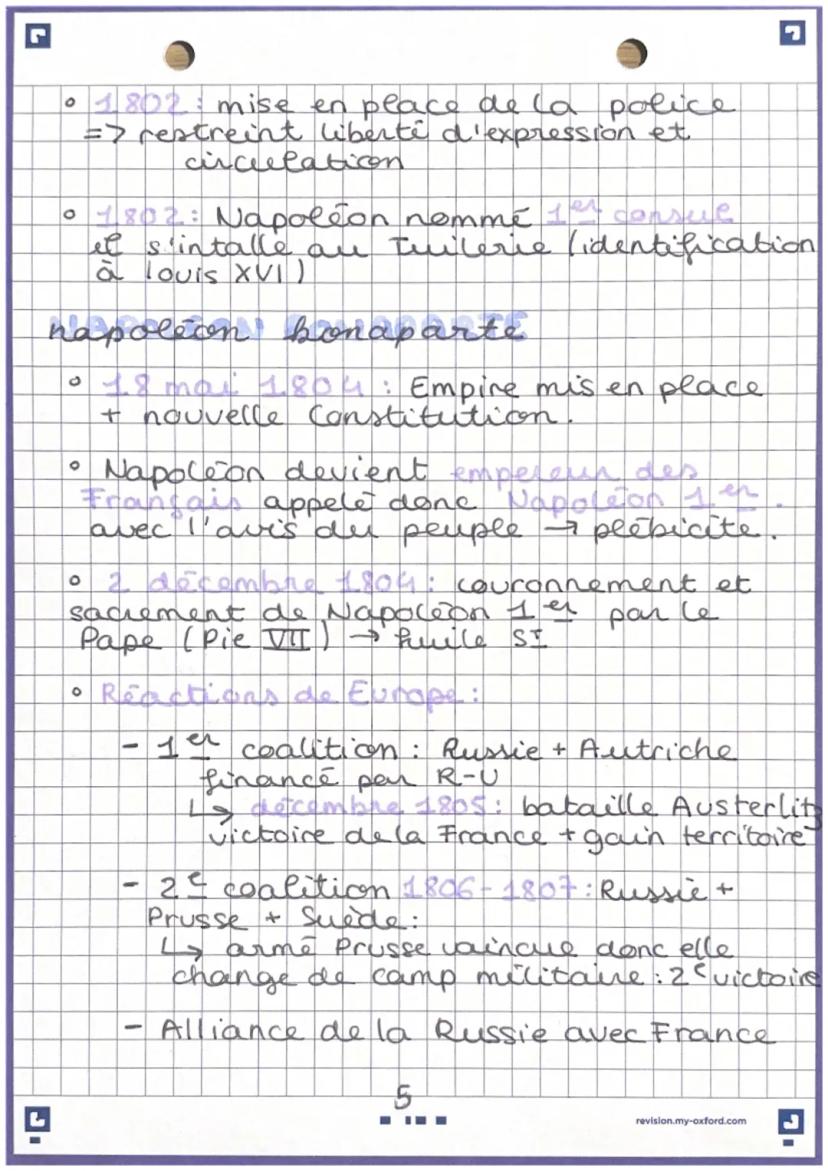 ° 1802 : mise en place de la police
=> restreint liberté d'expression et
circulation
° 1802 : Napoléon nommé 1er consul
il s'intalle au Tuilerie (identification
à louis XVI)
napoléon bonaparte
° 18 mai 1804 : Empire mis en place
+ nouvelle Constitution.
° Napoléon devient empereur des
Français appelé donc Napoléon 1er.
avec l'avis du peuple → plébicite.
° 2 décembre 1804 : couronnement et
sacrement de Napoléon 1er par le
Pape (Pie VII) → huile St
° Réactions de Europe :
- 1er coalition : Russie + Autriche
financé par R-U
↳ décembre 1805 : bataille Austerlitz
victoire de la France + gain territoire
- 2e coalition 1806-1807 : Russie +
Prusse + Suède :
↳ armé Prusse vaincue donc elle
change de camp militaire : 2e victoire
- Alliance de la Russie avec France
5
revision.my-oxford.com